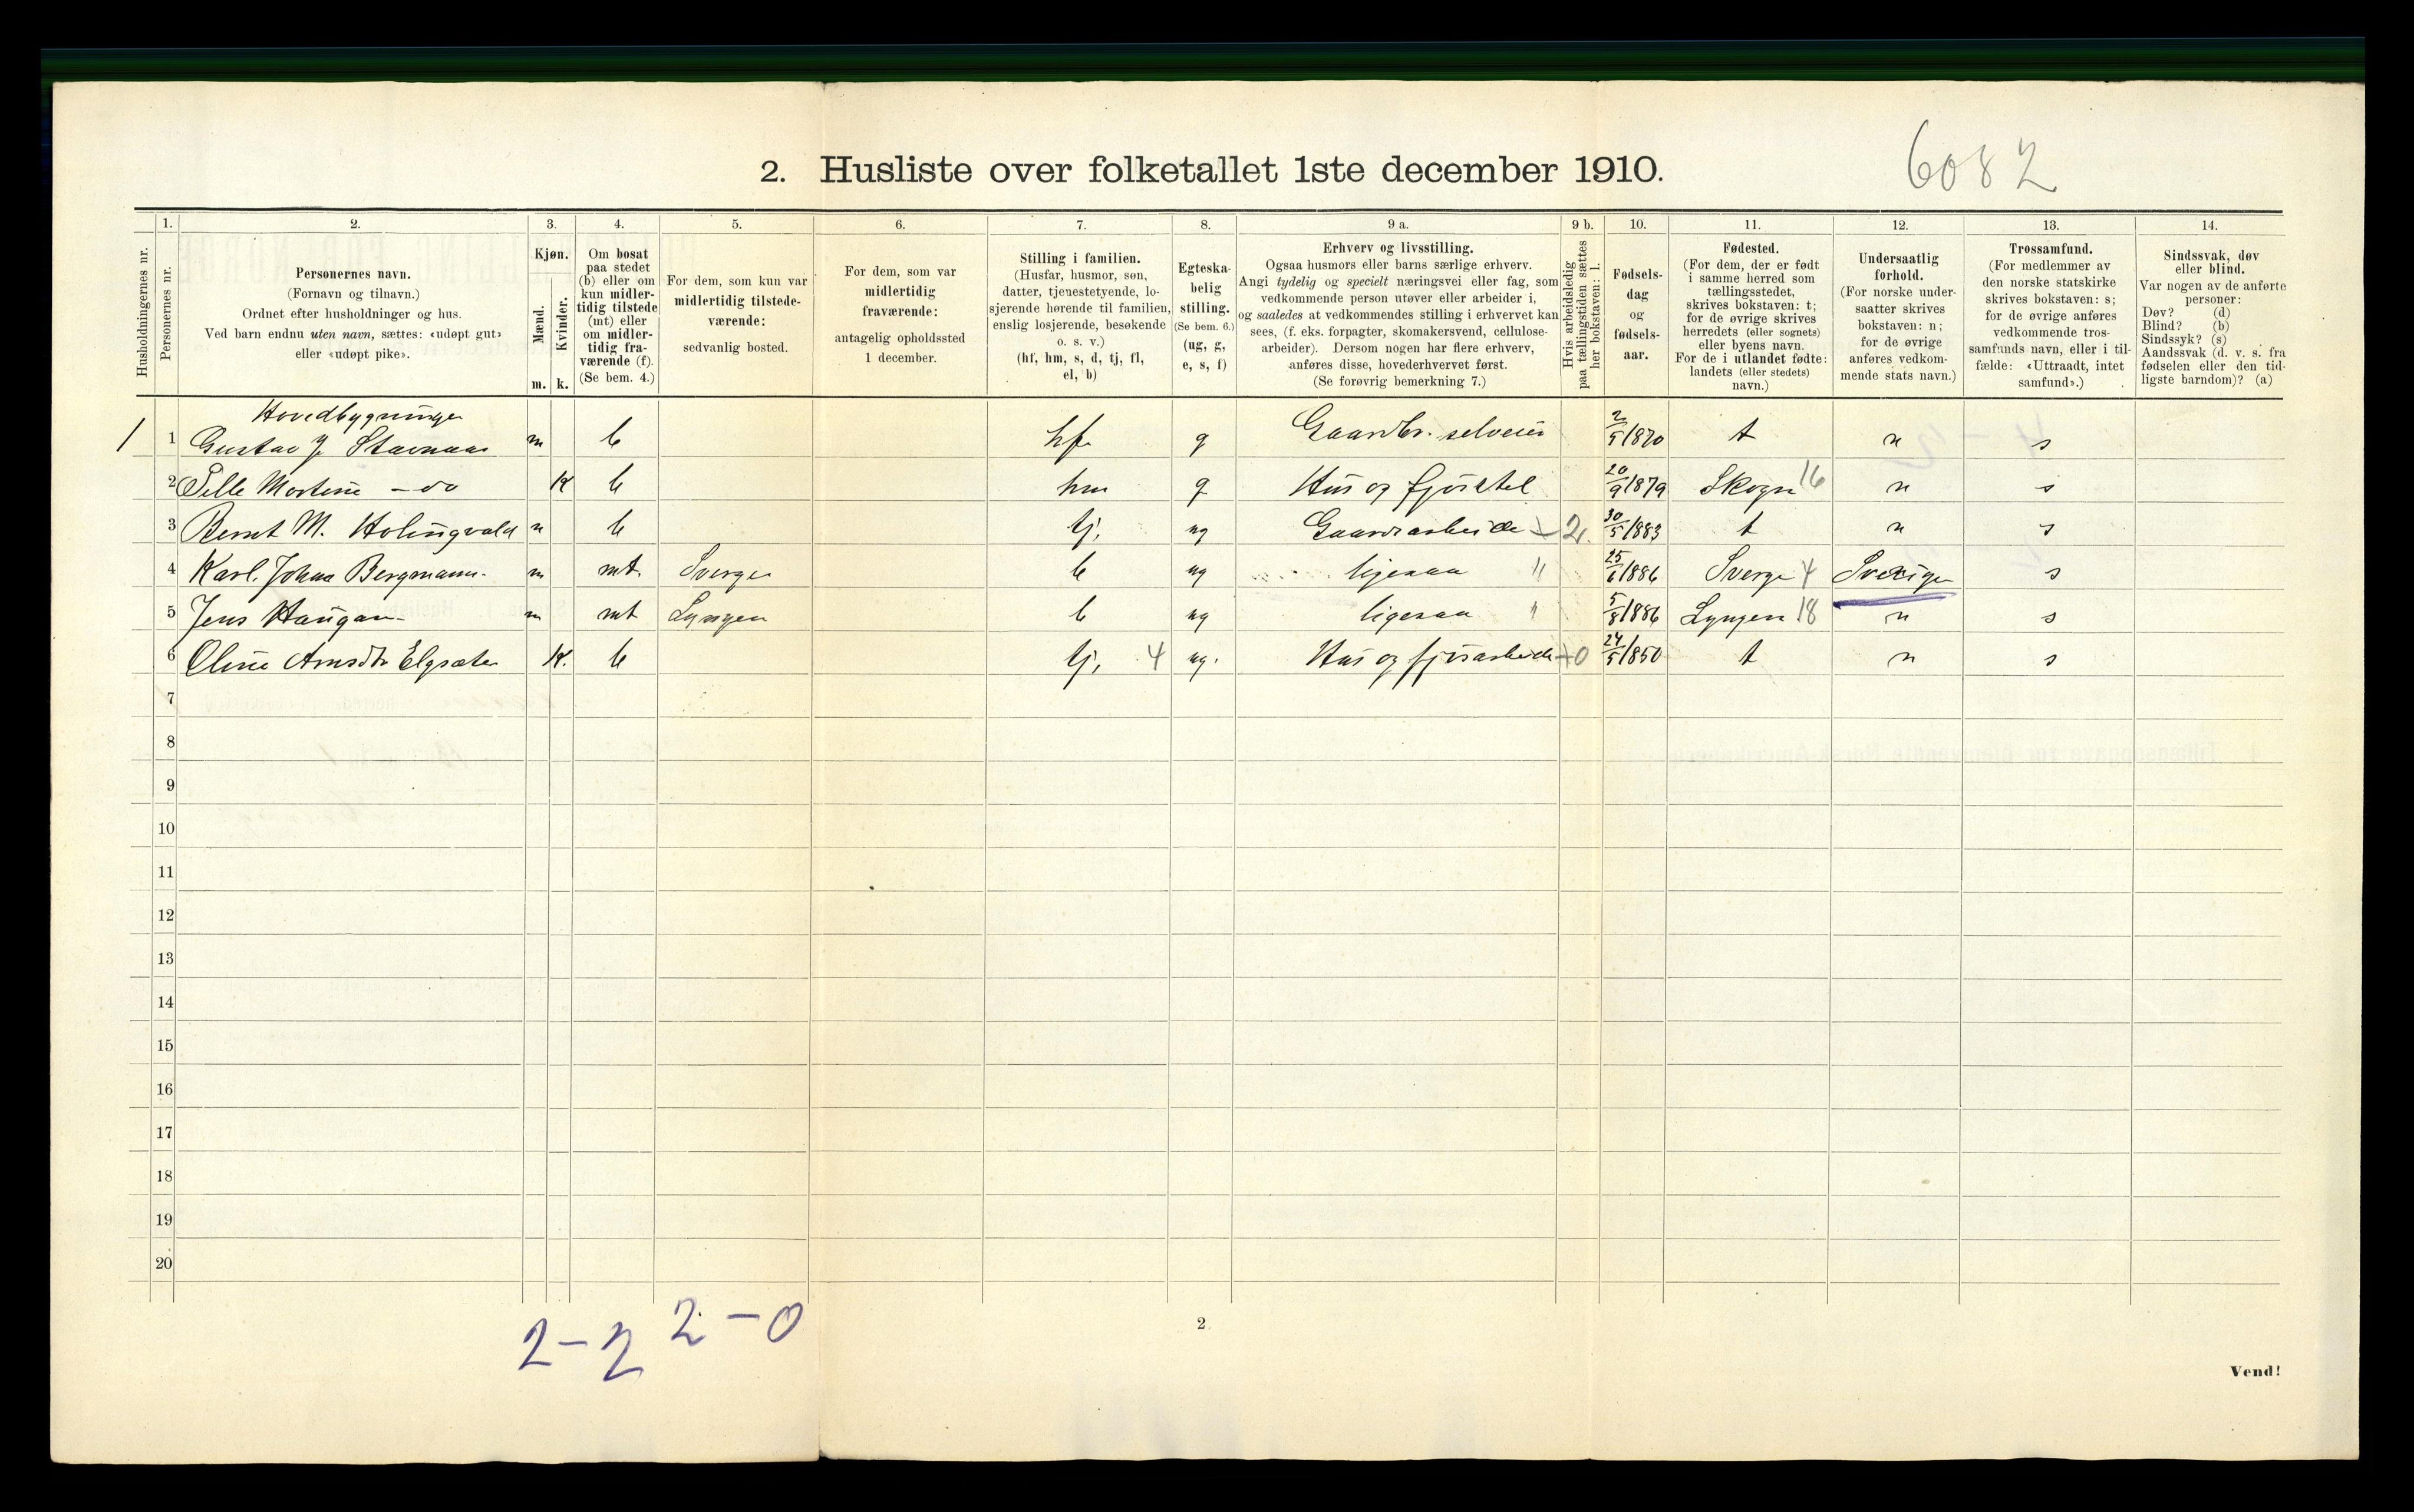 6082
2. Husliste over folketallet 1ste december 1910.
Husholdningernes nr.
1.
Personernes nr.
2.
Personernes navn.
(Fornavn og tilnavn.)
Ordnet efter husholdninger og hus.
Ved barn endnu uten navn, sættes: «udøpt gut»
eller «udøpt pike».
3.
Kjøn.
Mænd.
Kvinder.
m. k.
4.
Om bosat
paa stedet
(b) eller om
kun midler-
tidig tilstede
(mt) eller
om midler-
tidig fra-
værende (f).
(Se bem. 4.)
5.
For dem, som kun var
midlertidig tilstede-
værende:
sedvanlig bosted.
6.
For dem, som var
midlertidig
fraværende:
antagelig opholdssted
1 december.
7.
Stilling i familien.
(Husfar, husmor, søn,
datter, tjenestetyende, lo-
sjerende hørende til familien,
enslig losjerende, besøkende
o. s. v.)
(hf, hm, s, d, tj, fl,
el, b)
8.
Egteska-
belig
stilling.
(Se bem. 6.)
(ug, g,
e, s, f)
9 a.
Erhverv og livsstilling.
Ogsaa husmors eller barns særlige erhverv.
Angi tydelig og specielt næringsvei eller fag, som
vedkommende person utøver eller arbeider i,
og saaledes at vedkommendes stilling i erhvervet kan
sees, (f. eks. forpagter, skomakersvend, cellulose-
arbeider). Dersom nogen har flere erhverv,
anføres disse, hovederhvervet først.
(Se forøvrig bemerkning 7.)
9 b.
Hvis arbeidsledig
paa tællingstiden sættes
her bokstaven: l.
10.
Fødsels-
dag
og
fødsels-
aar.
11.
Fødested.
(For dem, der er født
i samme herred som
tællingsstedet,
skrives bokstaven: t;
for de øvrige skrives
herredets (eller sognets)
eller byens navn.
For de i utlandet fødte:
landets (eller stedets)
navn.)
12.
Undersaatlig
forhold.
(For norske under-
saatter skrives
bokstaven: n;
for de øvrige
anføres vedkom-
mende stats navn.)
13.
Trossamfund.
(For medlemmer av
den norske statskirke
skrives bokstaven: s;
for de øvrige anføres
vedkommende tros-
samfunds navn, eller i til-
fælde: «Uttraadt, intet
samfund».)
14.
Sindssvak, døv
eller blind.
Var nogen av de anførte
personer:
Døv? (d)
Blind? (b)
Sindssyk? (s)
Aandssvak (d. v. s. fra
fødselen eller den tid-
ligste barndom)? (a)
Hovedbygninge
1 1 Gustav J Stavnaas m b hf g Gaardbr. selveier 2/5 1870 t n s
2 Pelle Mortine - do K b hm g Hus og fjøsstel 20/9 1879 Skogn 16 n s
3 Bernt M. Holingvald m b tj, ug Gaardsarbeide 2. 30/5 1883 t n s
4 Karl. Johan Bergmann. m mt. Sverge b ug ligesaa " 25/6 1886 Sverge 4 Sverige s
5 Jens Haugan- m mt Lyngen b ug ligesaa " 5/8 1886 Lyngen 18 n s
6 Oline Arnsdtr Elgsæter K. b tj, 4 ug. Hus og fjøsarbeide +0 24/5 1850 t n s
7
8
9
10
11
12
13
14
15
16
17
18
19
20
2-2 2-0
2
Vend!